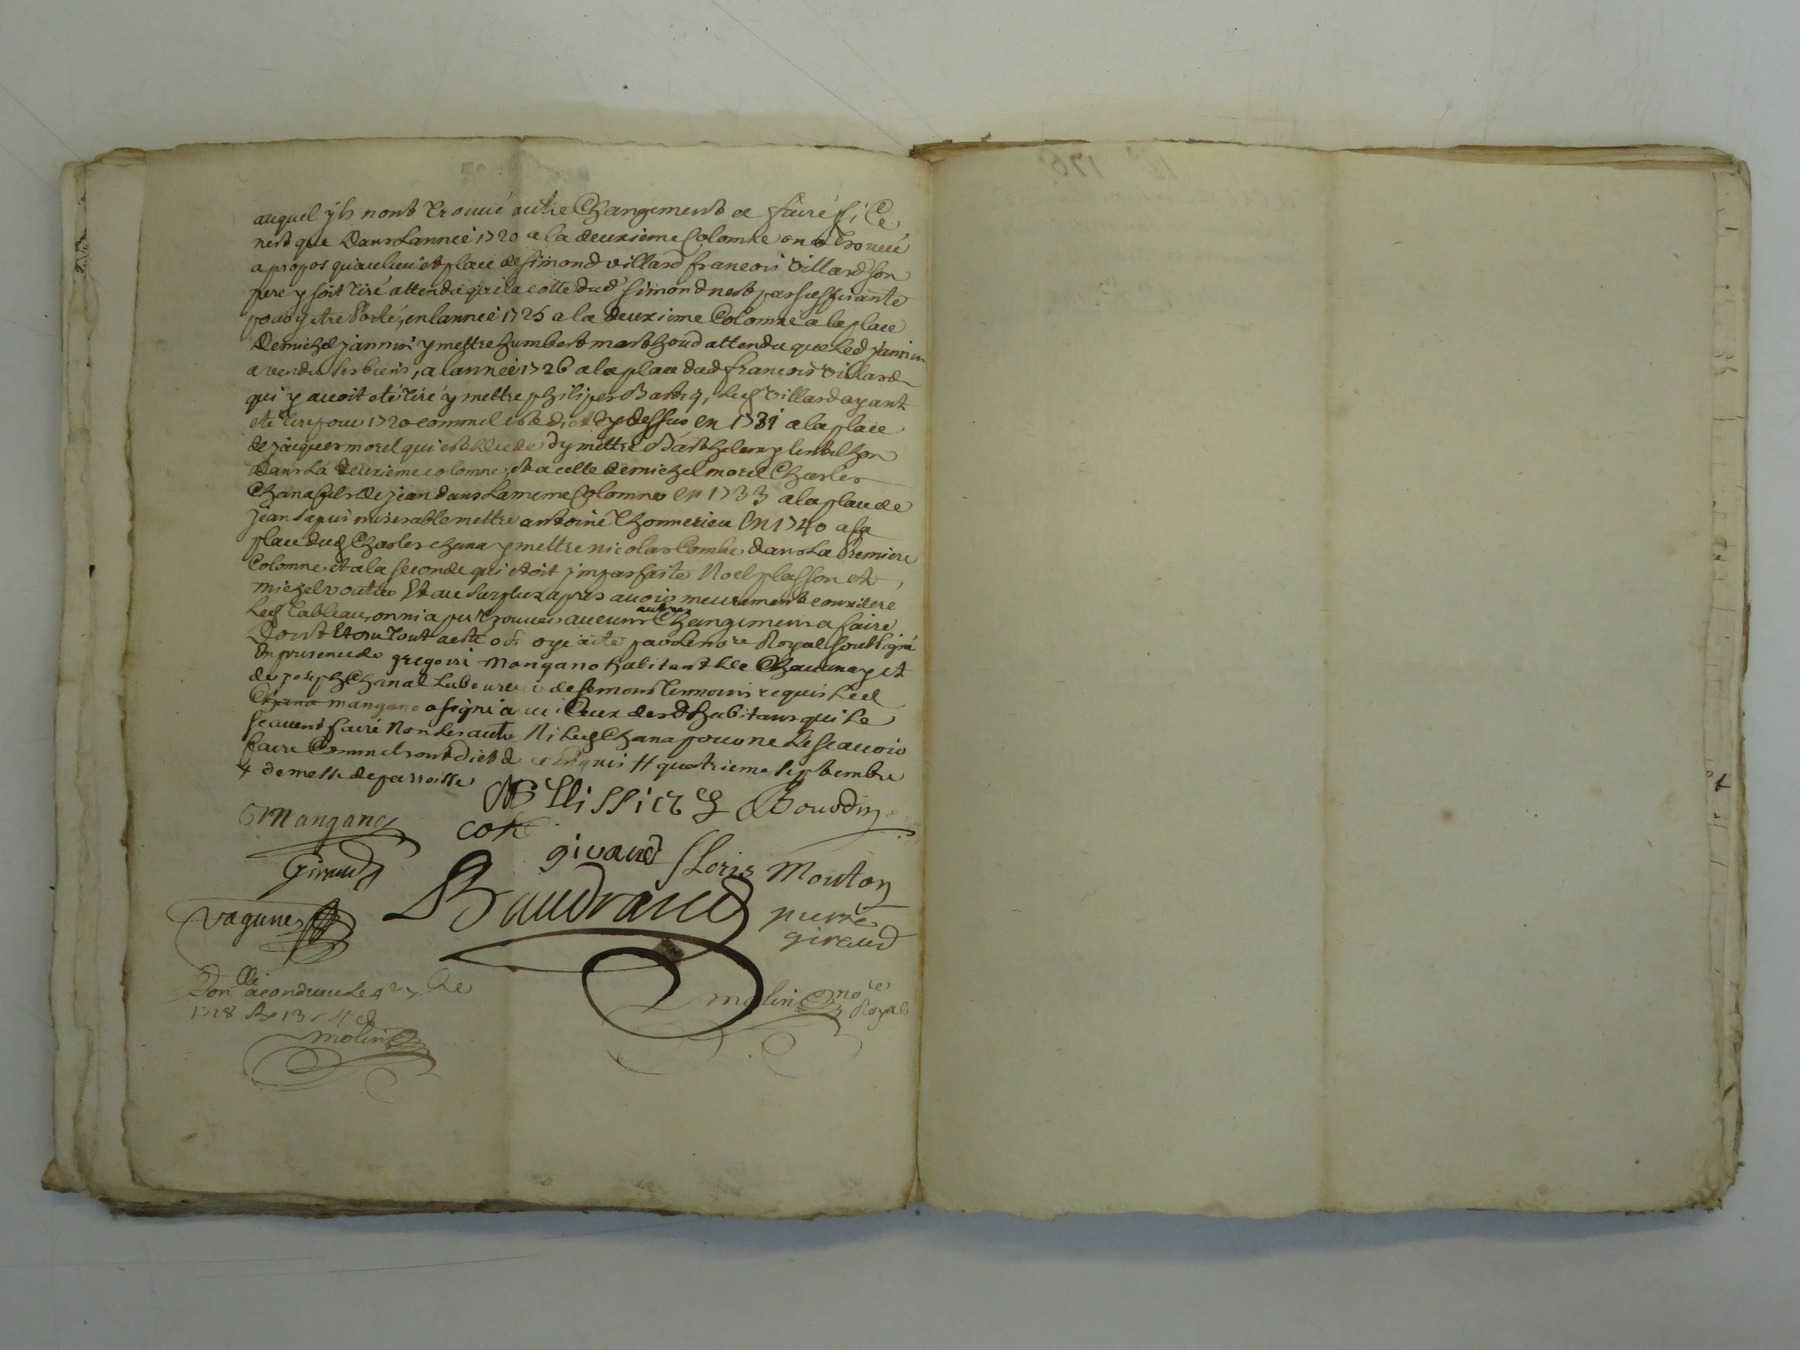 auquel ils nont trouvé autre Changement a faire si Ce
nest que Dans Lannée 1720 a la deuxieme Colomne on a trouvé
apropos quau lieu et place de Simond villard francois villard son
frere y soit tiré attendu que la cotte dud Simond nest pas suffisante
pour y etre Porté, en lannée 1725 a la deuxieme Colomne a la place
de michel jannin y mettre humbert marthoud attendu que Led jannin
a vendu ses biens, a lannée 1726 a la place dud francois villard
qui y avoit eté tiré y mettre philipes Led villard ayant
eté tiré pour 1720 comme il est dict cy dessus en 1731 a la place
de jacques morel qui est decede dy mettre Barthelemy
dans La deuxieme colomne, et a celle de michel morel Charles
Chana fils de jean dans La meme Colomne en 1733 a la place de
jean miserable mettre antoine Thonnerieu En 1740 a la
place dud Charles chana y mettre nicolas Combe dans La Premiere
Colomne et a la seconde qui etoit jmparfaite Noel plasson et
michel voutier Et au surplux apres avoir meurement consideré
Led Tableau, on ni a pu trouver aucuns autres Changemens a faire
Dont Et du Tout acte par Le nore Royal soubsigné
En presence de gregoire mangano habitant de Chavanay et
de joseph Chanal Laboureur de temoins requis Led
Chana mangano a signé avec Ceux desd habitans qui Le
scavent faire Non Les autres Ni Led Chana pour ne Le scavoir
faire Comme ils ont dict de ce enquis quatrieme septembre
de messe de parroisse
Mangano
Bouvdin
Giraud
giraud
floris Mouton
Baudrand
vagunes
pierre
giraud
molin nore
Royal
Con lle a condrieu Le 4e 7bre
1718
molin